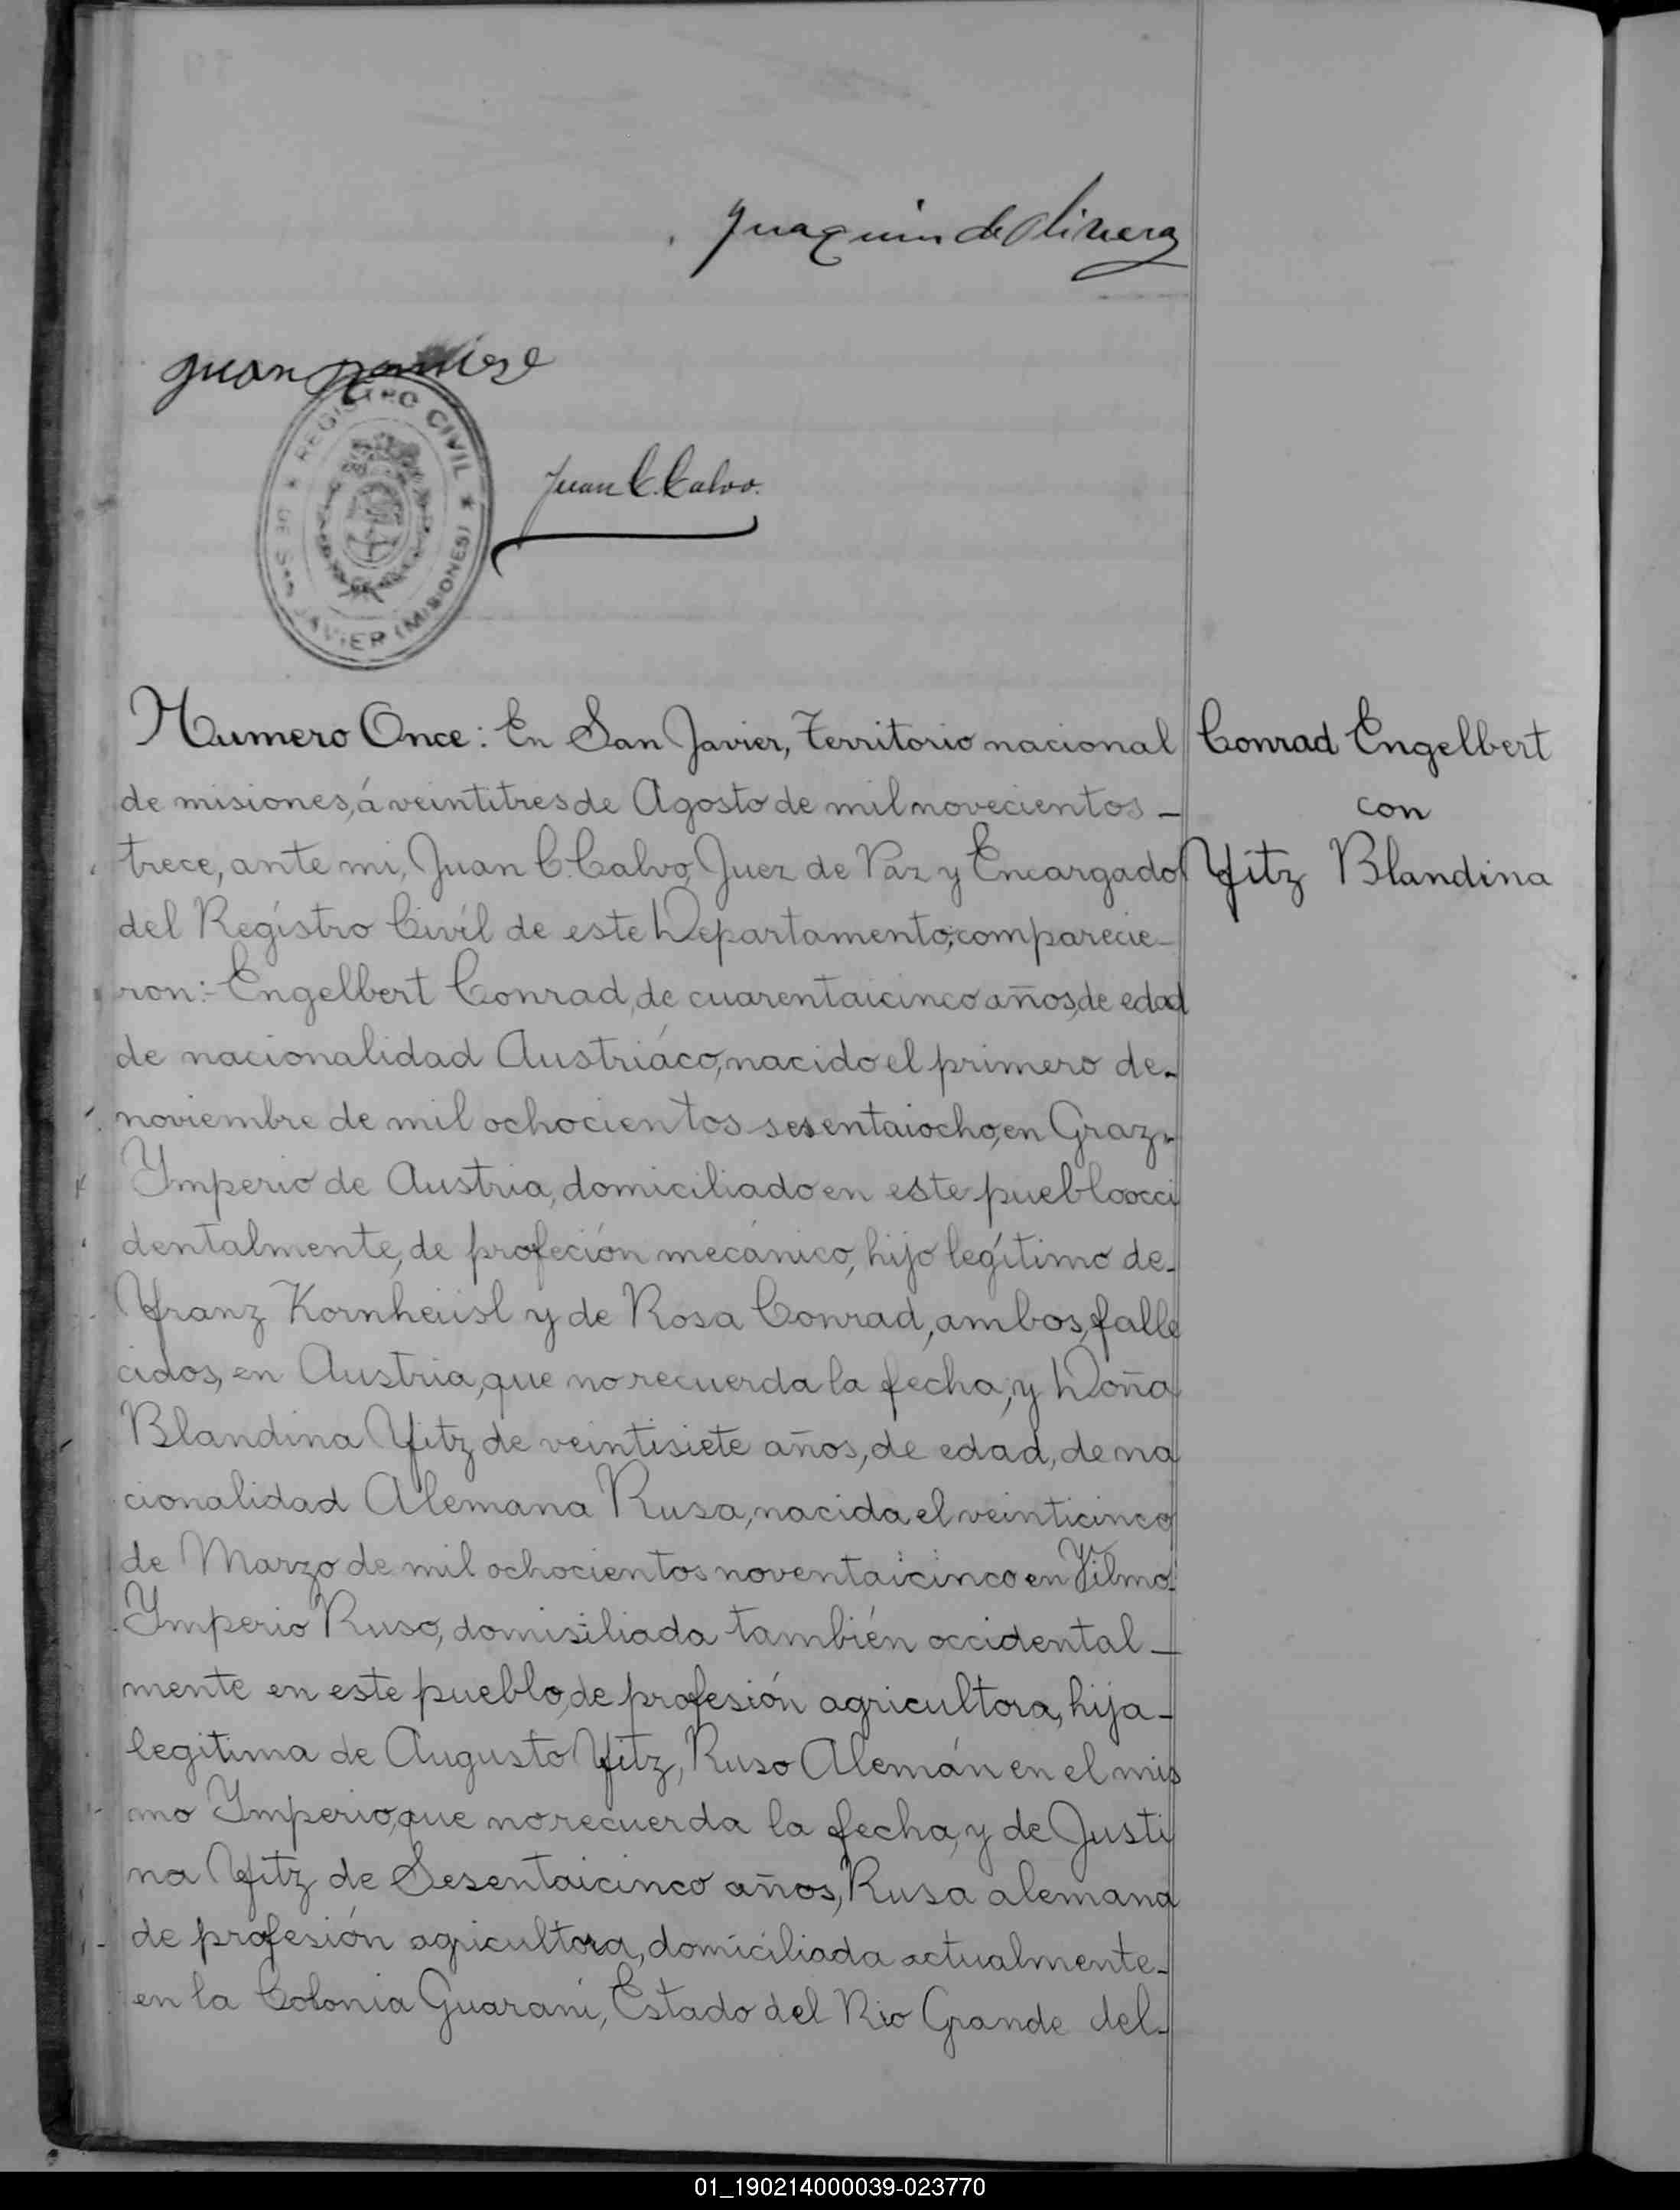 Juaquin de Olivera
Juan
REGISTRO CIVIL
DE San JAVIER (MISIONES)
Juan C. Calvo.
Numero Once: En San Javier, Territorio nacional
de misiones, á veintitres de Agosto de mil novecientos –
trece, ante mi, Juan C. Calvo, Juez de Paz y Encargado
del Regístro Civíl de este Departamento; comparecie–
ron:– Engelbert Conrad, de cuarentaicinco años, de edad
de nacionalidad Austriáco, nacido el primero de–
noviembre de mil ochocientos sesentaiocho, en Graz–
Ymperio de Austria, domiciliado en este pueblo occi
dentalmente, de profeción mecánico, hijo legítimo de–
Franz Kornheiisl y de Rosa Conrad, ambos, falle
cidos, en Austria, que no recuerda la fecha, y Doña
Blandina Fitz de veintisiete años, de edad, de na
cionalidad Alemana Rusa, nacida el veinticinco
de Marzo de mil ochocientos noventaicinco en Vilmo.
Ymperio Ruso, domisiliada también occidental –
mente en este pueblo, de profesión agricultora, hija –
legitima de Augusto Fitz, Ruso Alemán en el mis
mo Ymperio, que no recuerda la fecha, y de Justi
na Fitz de Sesentaicinco años, Rusa alemana
de profesión agricultora, domiciliada actualmente–
en la Colonia Guarani, Estado del Rio Grande del–
Conrad Engelbert
con
Fitz Blandina
01_190214000039-023770